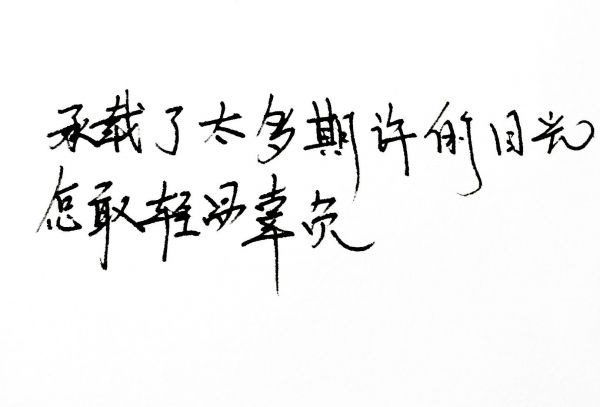 承载了太多期许的目光
怎敢轻易辜负